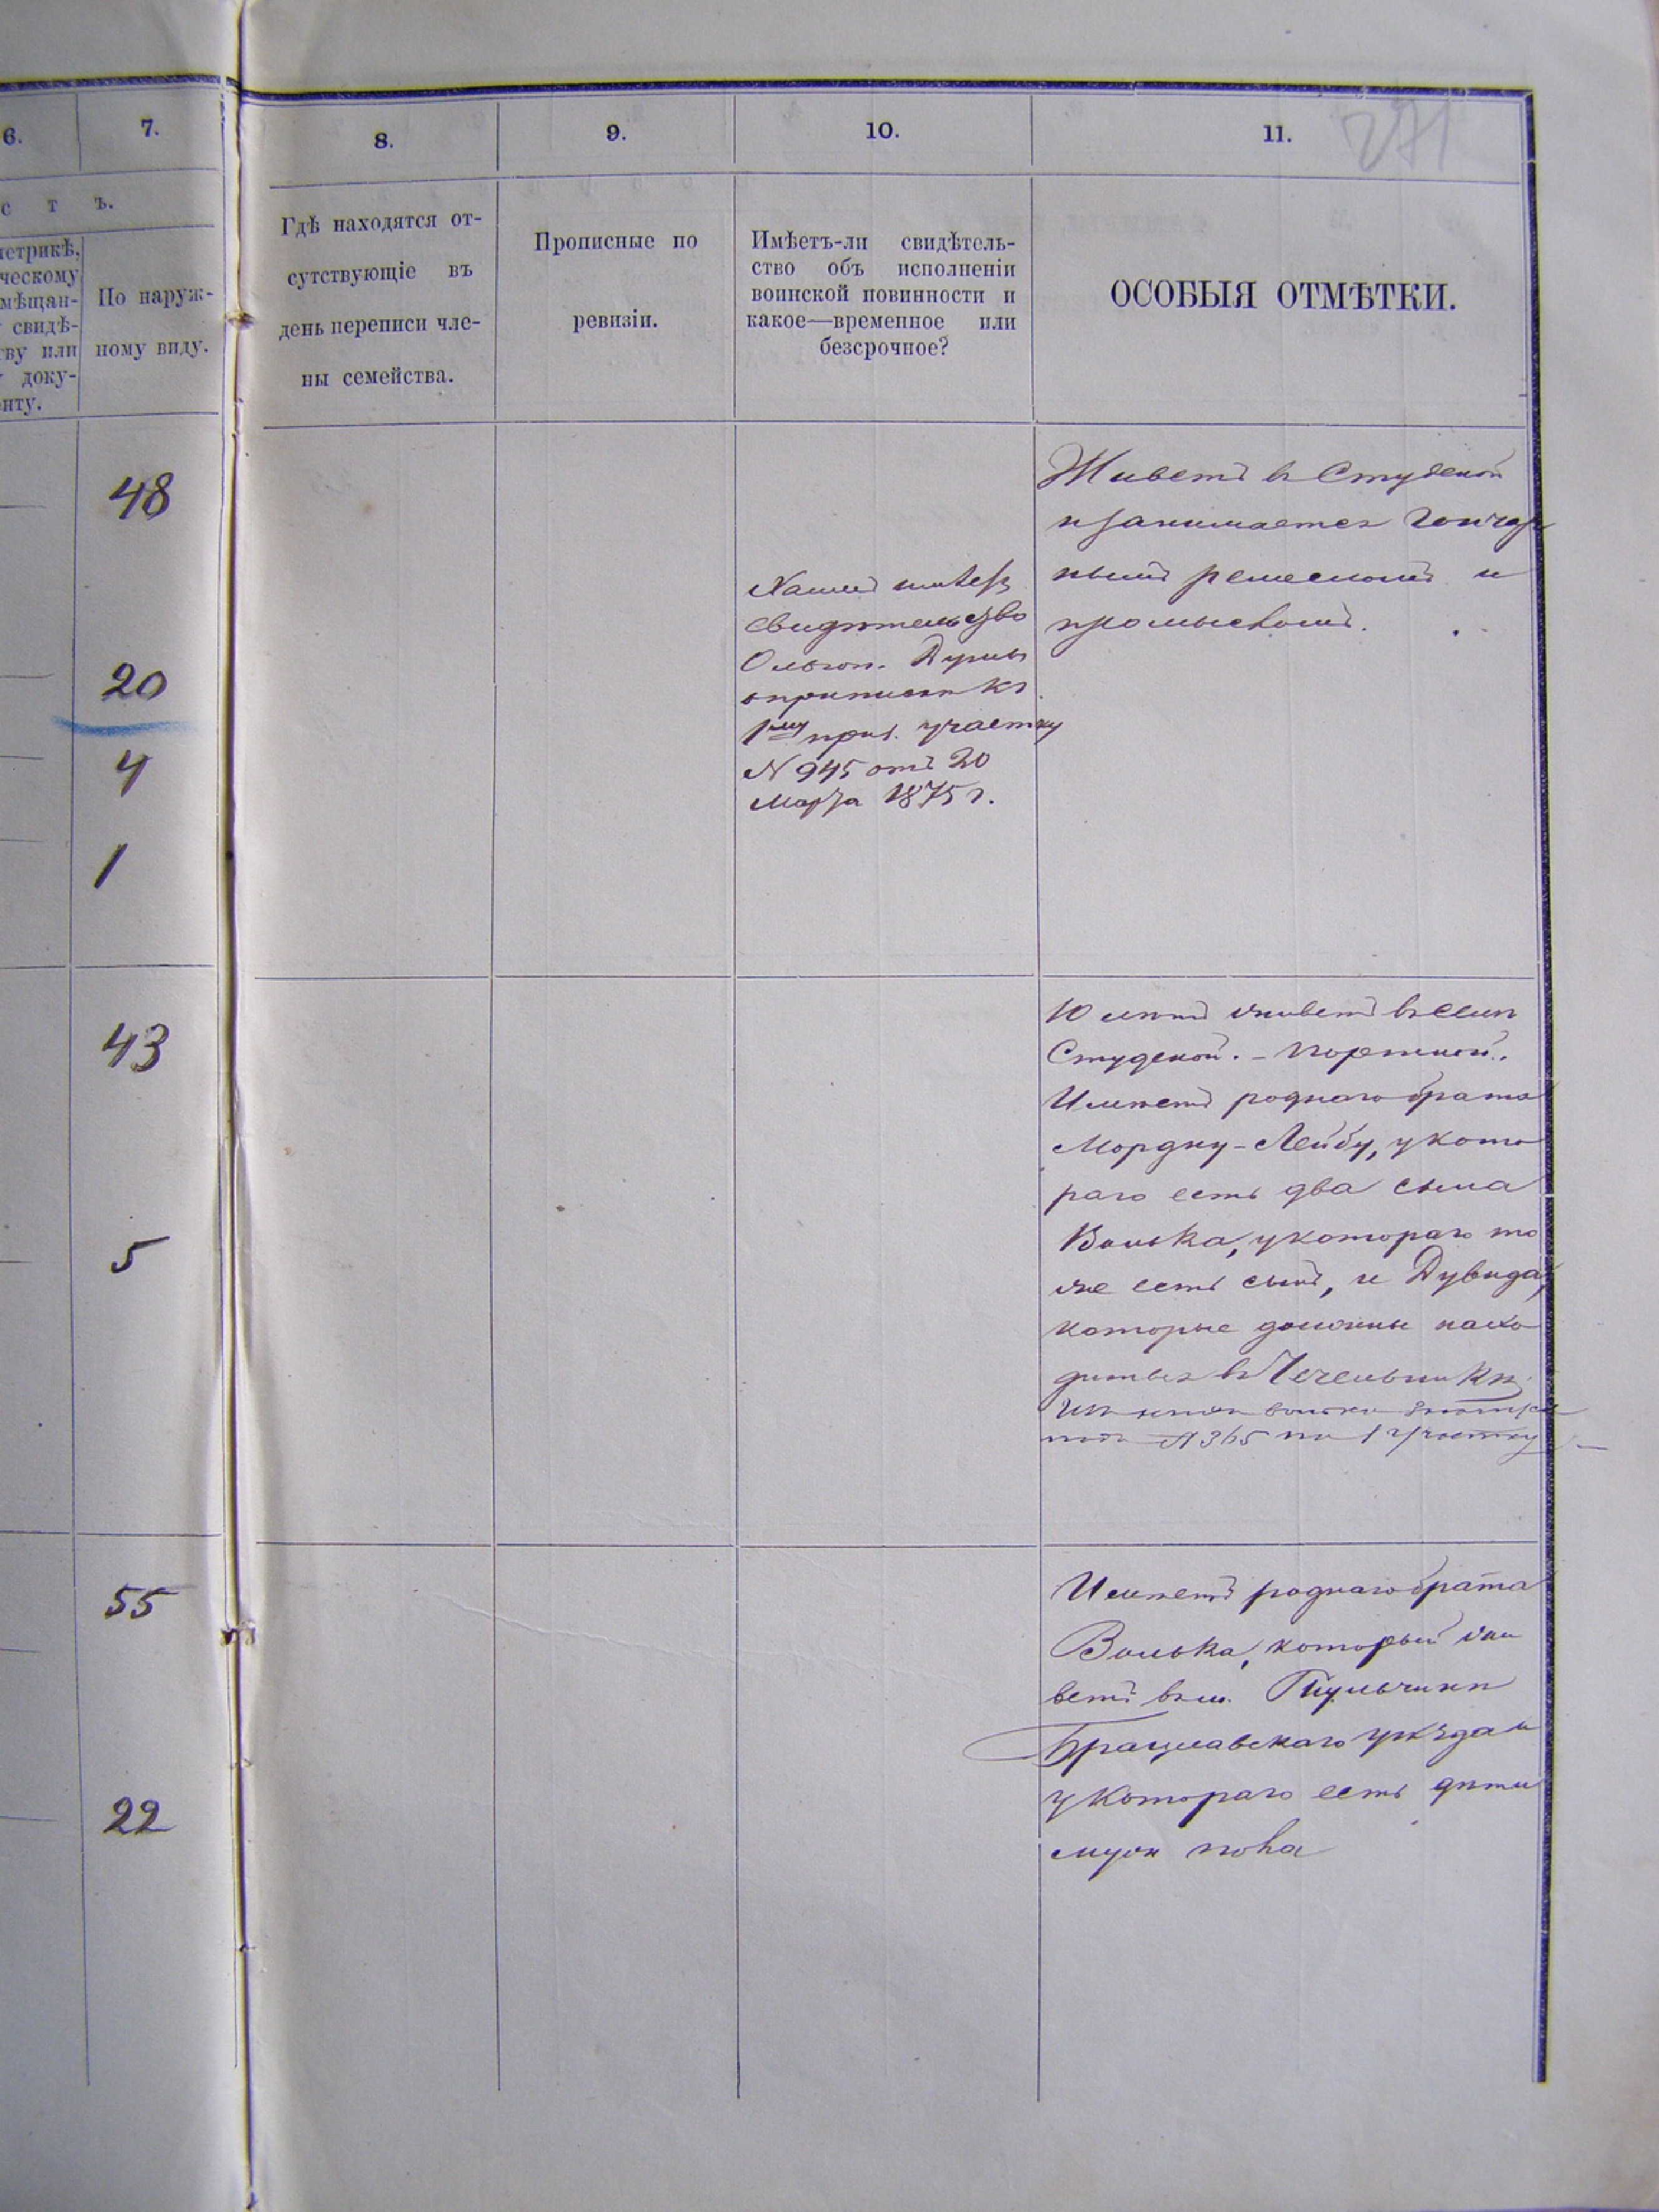 6.
7.
8.
9.
10.
11.
271
с т ъ.
метрикѣ,
ческому
мѣщан-
свидѣ-
тву или
доку-
енту.
По наруж-
ному виду.
Гдѣ находятся от-
сутствующіе въ
день переписи чле-
ны семейства.
Прописные по
ревизіи.
Имѣетъ-ли свидѣтель-
ство объ исполненіи
воинской повинности и
какое—временное или
безсрочное?
ОСОБЫЯ ОТМѢТКИ.
48
20
4
1
Хаимъ имѣетъ
свидѣтельство
Ольгоп. Думы
о припискѣ къ
1му приз. участку
N 945 отъ 20
Марта 1875 г.
Живетъ въ Студеной
и занимается гончар
нымъ ремесломъ и
промысломъ.
43
5
10 лѣтъ живетъ въ селѣ
Студеной. - Портной.
Имѣетъ роднаго брата
Мордку-Лейбу, у кото
раго есть два сына
Волька, у котораго то
же есть сынъ, и Дувида,
которые должны нахо
диться въ Чечельникѣ
N 365 по 1 участку
55
22
Имѣетъ роднаго брата
Волька, который жи
ветъ въ м. Тульчинѣ
Брацлавскаго уѣзда и
у котораго есть дѣти
муж пола